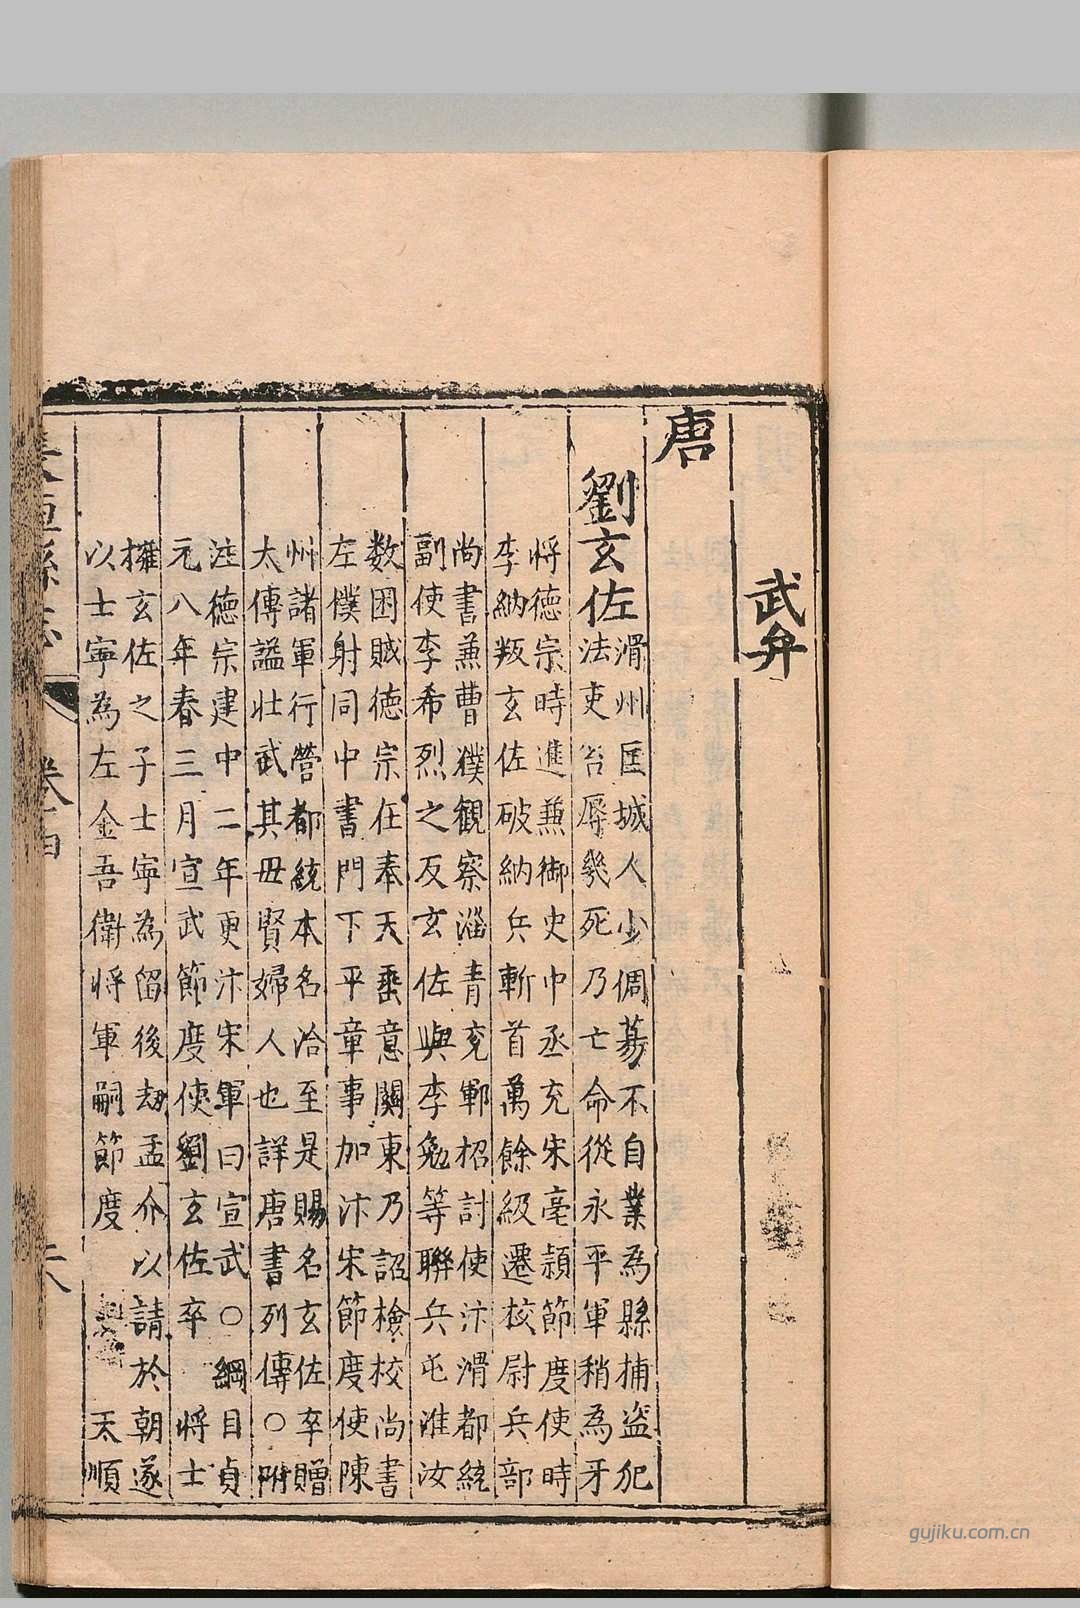 武弁
唐
劉玄佐
滑州匡城人少倜蕩不自業為縣捕盜犯
法吏笞辱幾死乃亡命從永平軍稍為牙
將德宗時進兼御史中丞充宋亳潁節度使時
李納叛玄佐破納兵斬首萬餘級遷校尉兵部
尚書兼曹濮觀察淄青兗鄆招討使汴滑都統
副使李希烈之反玄佐與李勉等聯兵屯淮汝
数困賊德宗在奉天垂意關東乃詔檢校尚書
左僕射同中書門下平章事加汴宋節度使陳
州諸軍行營都統本名洽至是賜名玄佐卒贈
太傅諡壯武其母賢婦人也詳唐書列傳○附
注德宗建中二年更汴宋軍曰宣武○綱目貞
元八年春三月宣武節度使劉玄佐卒 將士
擁玄佐之子士寧為留後劫孟介以請於朝遂
以士寧為左金吾衛將軍嗣節度 天順
長垣縣志
卷 六
gujiku.com.cn